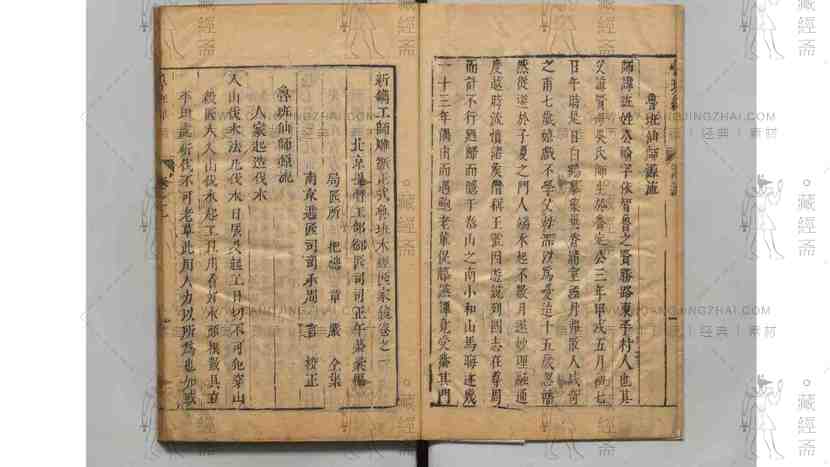 魯班仙師源流
師諱班姓公輸字依智魯之賢勝路東平村人也其
父諱賢母吳氏師生於魯定公三年甲戌五月初七
日午時是日白鶴羣集異香滿室經月弗散人咸奇
之甫七歲嬉戲不學父母深以為憂迨十五歲忽幡
然從遊於子夏之門人端木起不數月遂妙理融通
度越時流憤諸矦僭稱王號因遊說列國志在尊周
而計不行廼歸而隱于泰山之南小和山焉晦迹幾
一十三年偶出而遇鮑老輩促膝讌譚竟受業其門
新鐫工師雕斲正式魯班木經匠家鏡卷之一
北京提督工部御匠司司正午榮彙編
局匠所　把總　章嚴　仝集
南京遞匠司司承周言　校正
魯班仙師源流
人家起造伐木
入山伐木法凡伐木日辰及起工日切不可犯穿山
殺匠人入山伐木起工且用看好木頭根數具立
平坦處斫伐不可老草此用人力以所為也如或
藏經斋
ZANGJINGZHAI.COM